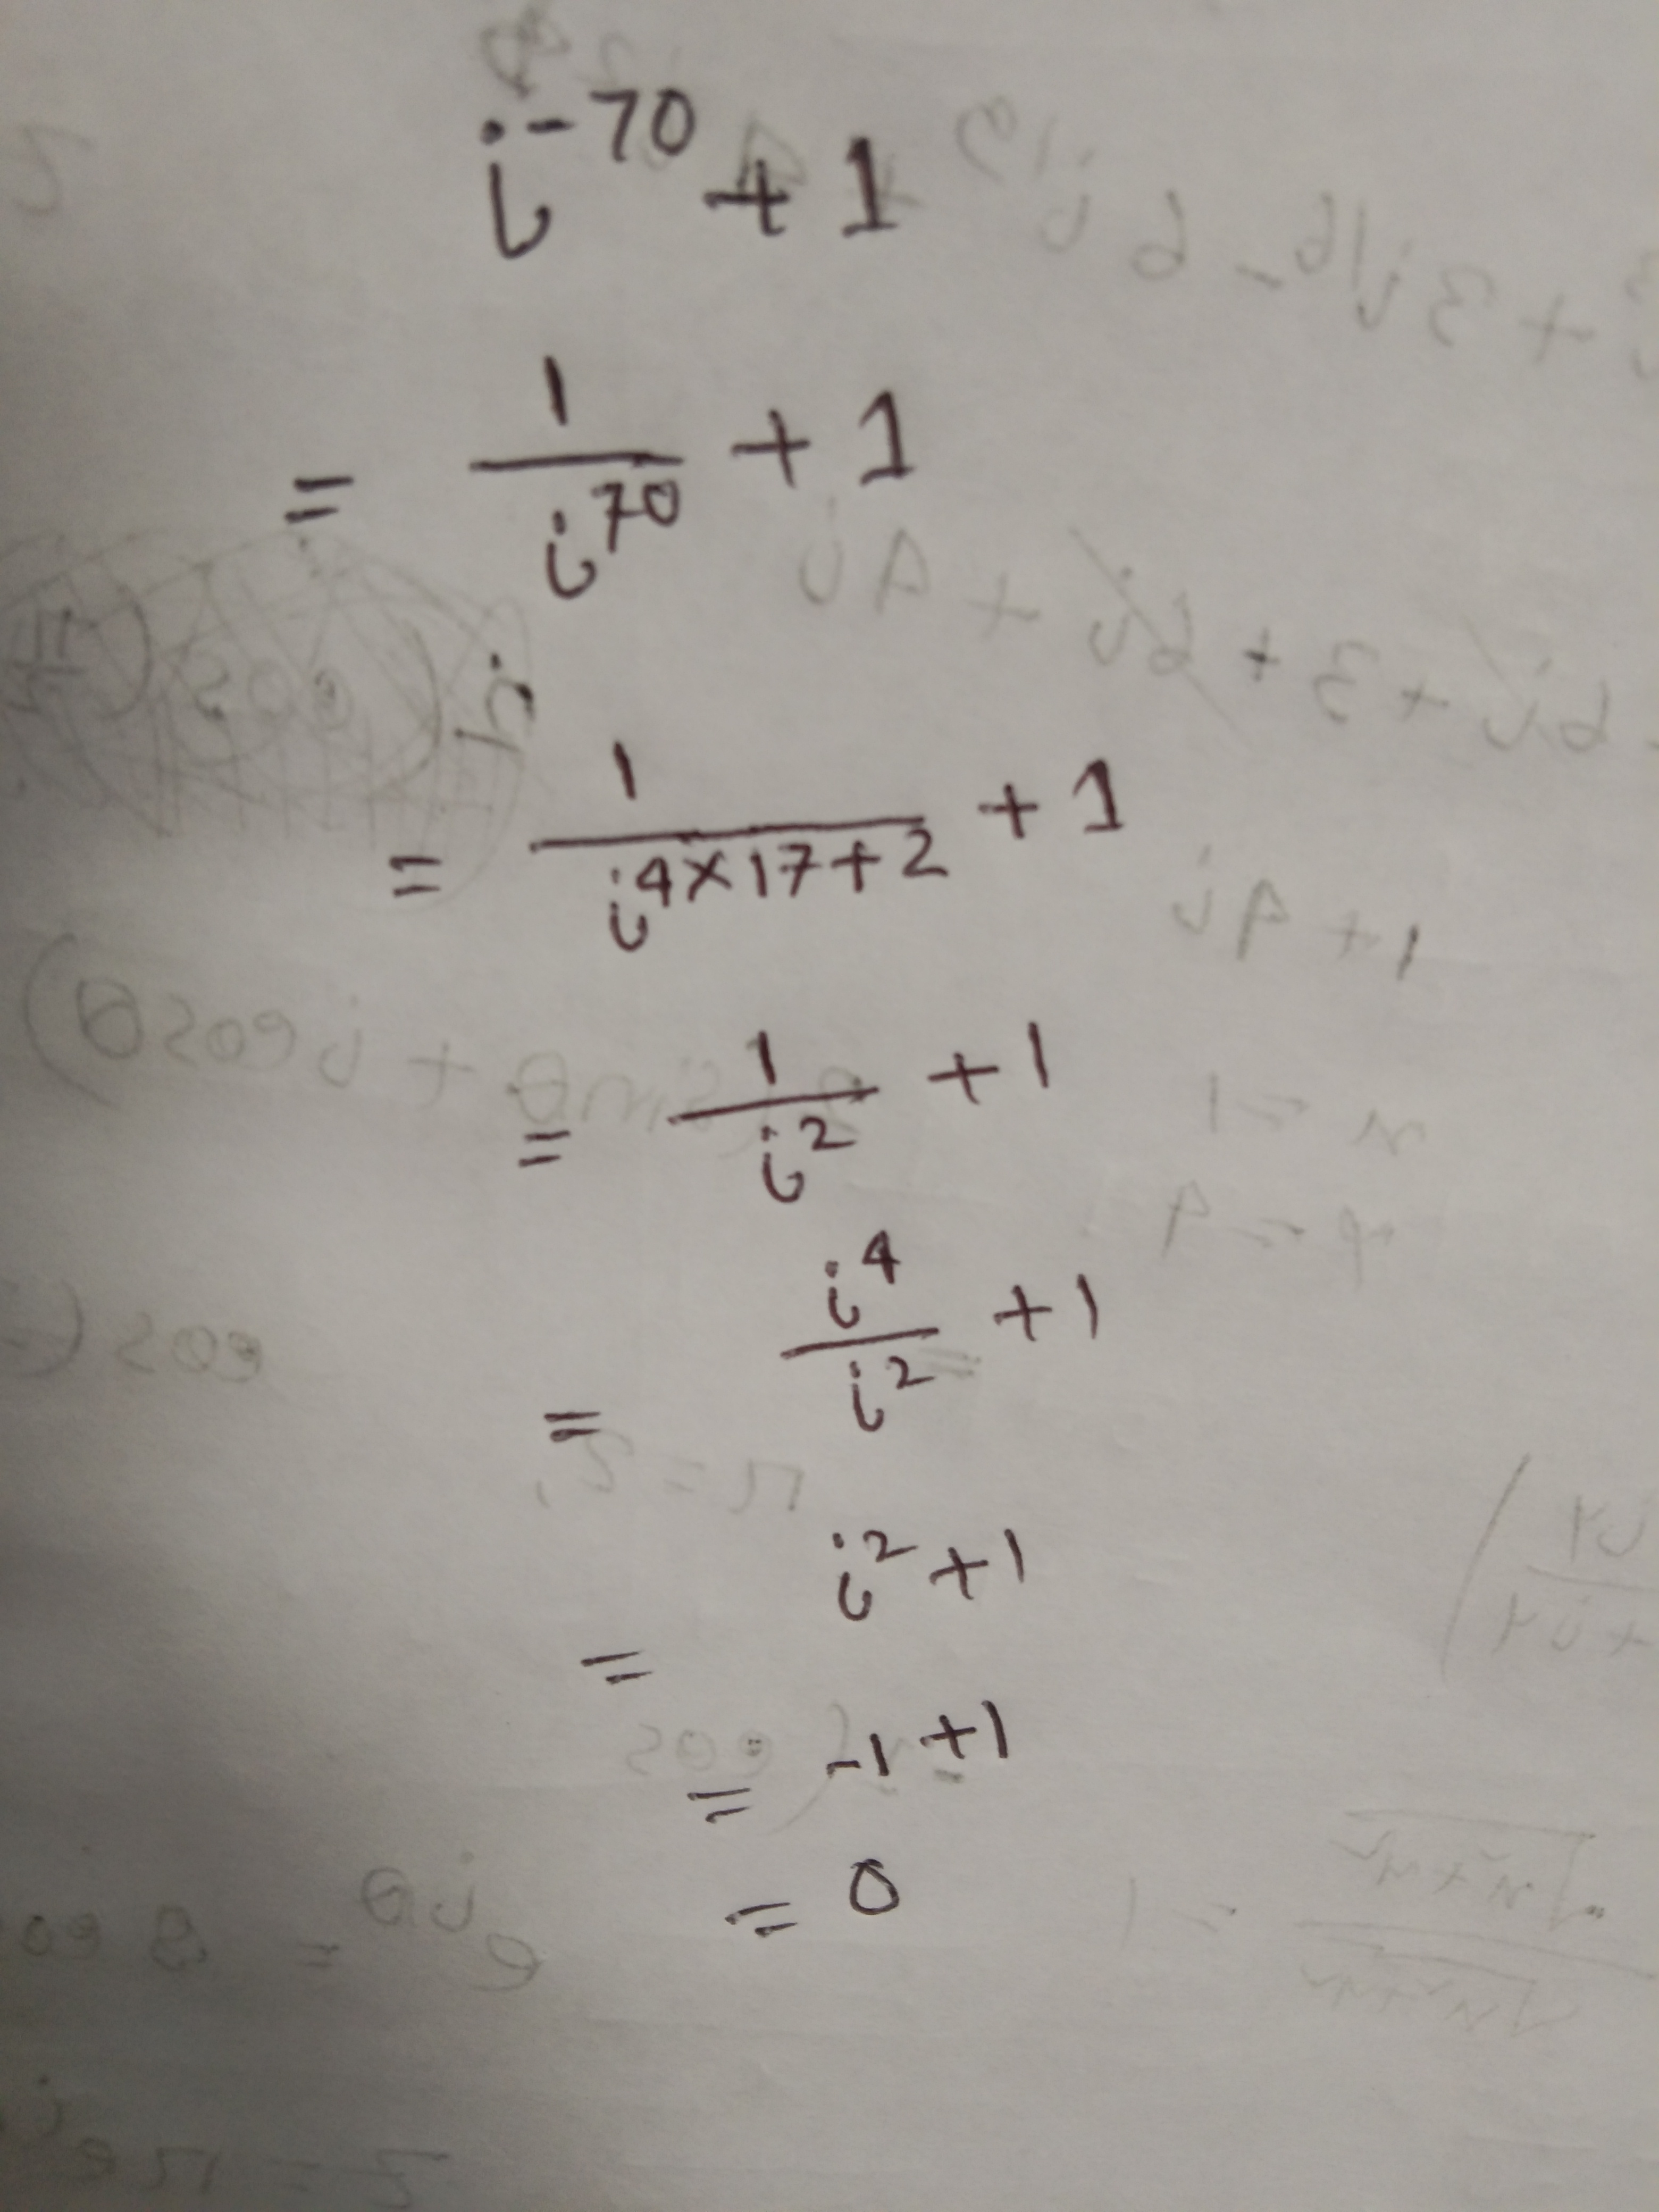 i^-70 + 1
= 1/i^70 + 1
= 1/i^4×17+2 + 1
= 1/i^2 + 1
= i^4/i^2 + 1
= i^2 + 1
= -1 + 1
= 0